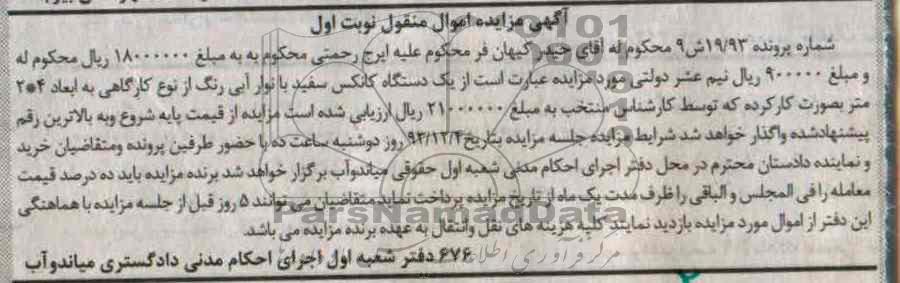 آگهی مزایده اموال منقول نوبت اول
شماره پرونده ۱۹/۹۳ش۹ محکوم له آقای حیدر کیهان فر محکوم علیه ایرج رحمتی محکوم به به مبلغ ۱۸۰۰۰۰۰۰ ریال محکوم له
و مبلغ ۹۰۰۰۰۰ ریال نیم عشر دولتی مورد مزایده عبارت است از یک دستگاه کانکس سفید با نوار آبی رنگ از نوع کارگاهی به ابعاد ۴*۲
متر بصورت کارکرده که توسط کارشناس منتخب به مبلغ ۲۱۰۰۰۰۰۰ ریال ارزیابی شده است مزایده از قیمت پایه شروع وبه بالاترین رقم
پیشنهادشده واگذار خواهد شد شرایط مزایده جلسه مزایده بتاریخ ۹۳/۱۲/۴ روز دوشنبه ساعت ده با حضور طرفین پرونده ومتقاضیان خرید
و نماینده دادستان محترم در محل دفتر اجرای احکام مدنی شعبه اول حقوقی میاندوآب برگزار خواهد شد برنده مزایده باید ده درصد قیمت
معامله را فی المجلس و الباقی را ظرف مدت یک ماه از تاریخ مزایده پرداخت نماید متقاضیان می توانند ۵ روز قبل از جلسه مزایده با هماهنگی
این دفتر از اموال مورد مزایده بازدید نمایند کلیه هزینه های نقل وانتقال به عهده برنده مزایده می باشد.
۶۷۶ دفتر شعبه اول اجرای احکام مدنی دادگستری میاندوآب
ParsNamadData